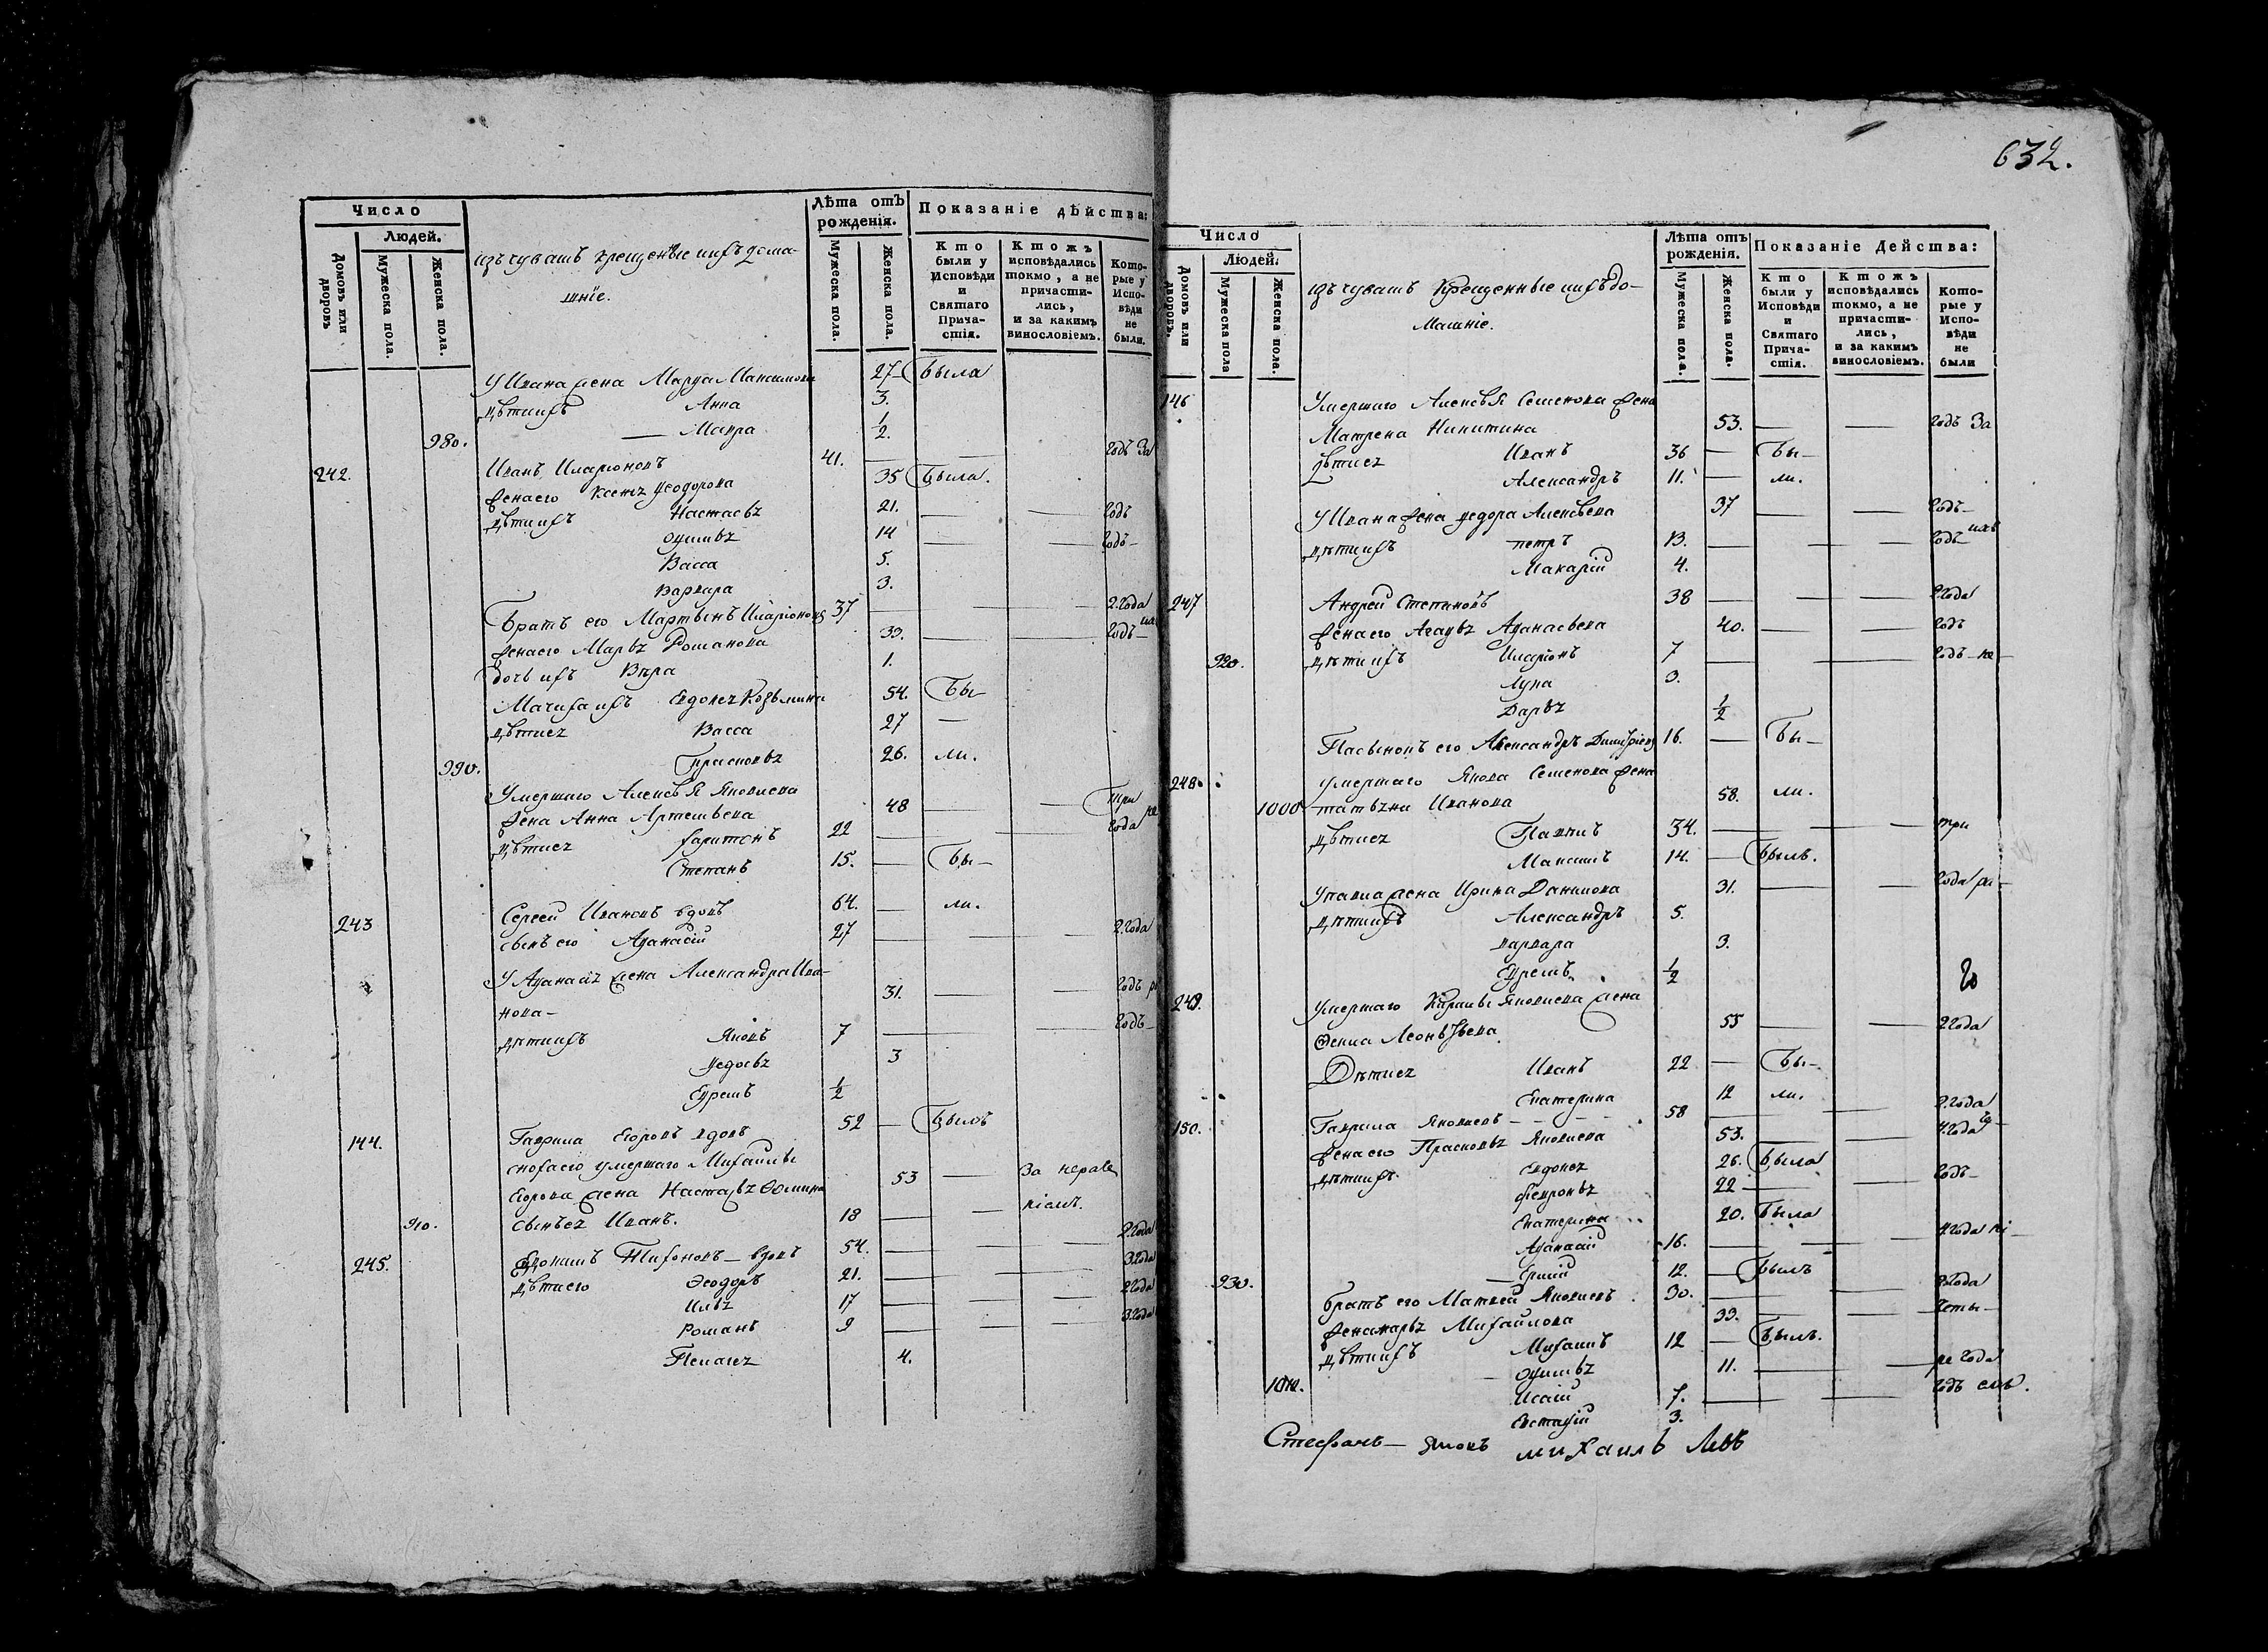 Число
Людей.
Домовъ или дворовъ
Мужеска пола.
Женска пола.
изъ чувашъ крещеные ихъ дома-
шніе.
Лѣта отъ рожденія.
Мужеска пола.
Женска пола.
Показаніе дѣйства:
Кто были у Исповѣди и Святаго Прича- стія.
Ктожъ исповѣдались токмо, а не причасти- лись, и за какимъ винословіемъ.
Кото- рые у Испо- вѣди не были.
У Ивана жена Марѳа Максимова 27 была
дѣти ихъ Анна 3.
980. — Мавра ½.
242. Иванъ Иларіоновъ 41. — годъ За
жена его Ксеніѧ Ѳеодорова 35 была.
дѣти ихъ Настасьѧ 21. — — годъ
14 — — годъ —
Васса 5.
Варвара 3.
Братъ его Мартынъ Иларіоновъ 37 — — 2. года
жена его Марьѧ Романова 39. — — годъ —
дочь ихъ Вѣра 1.
Мачиха ихъ Евдокеѧ Козьмина 54. бы-
дѣти еѧ Васса 27 —
990. Прасковьѧ 26. ли.
Умершаго Алексѣѧ Яковлева
жена Анна Артемьева 48 — — три
дѣти еѧ Харитонъ 22 — — года
Степанъ 15. — бы-
243 Сергей Ивановъ вдовъ 64. — ли.
сынъ его Аѳанасій 27 — — 2. года
У Аѳанасіѧ жена Александра Ива-
нова — 31. — — годъ
дѣти ихъ Яковъ 7 — — годъ —
Ѳедосьѧ 3
Ефремъ ½
144. Гаврила Егоровъ вдовъ 52 — былъ
сноха его умершаго Михаилы
Егорова жена Настасьѧ Ѳомина 53 — За нераде
910. сынъ еѧ Иванъ. 18 — — ніемъ.
2. года
245. Евдокимъ Тихоновъ — вдовъ 54. — — 3. года
дѣти его Ѳеодоръ 21. — — 2 года
Ильѧ 17 — — 3. года
Романъ 9 — —
Пелагеѧ 4.
632.
Число
Людей.
Домовъ или дворовъ.
Мужеска пола
Женска пола.
изъ чувашъ Крещенные ихъ до-
машніе.
Лѣта отъ рожденія.
Мужеска пола.
Женска пола.
Показаніе Действа:
Кто были у Исповѣди и Святаго Прича- стія.
Ктожъ исповѣдались токмо, а не причасти- лись, и за какимъ винословіемъ.
Кото- рые у Испо- вѣди не были
146 Умершаго Алексѣѧ Семенова жена
Матрена Никитина 53. — — годъ За
дѣти еѧ Иванъ 36 — бы —
Александръ 11. — ли.
У Ивана жена Ѳедора Алексѣева 37 — — годъ —
дѣти ихъ петръ 13. — — годъ
Макарій 4.
247 Андрей Степановъ 38 — — 2 года
жена его Агаѳьѧ Аѳанасьева 40. — — годъ
920. дѣти ихъ Иларіонъ 7 — — годъ — не —
Лука 3.
Дарьѧ ½
Пасынокъ его Александръ Димитріевъ 16. — бы —
248. умершаго Якова Семенова жена
1000 татьѧна Иванова 58. ли.
дѣти еѧ Павилъ 34. — — три
Максимъ 14. — былъ.
У павла жена Ирина Данилова 31. — — года ра —
дѣти ихъ Александръ 5.
варвара 3.
Ефремъ ½
249. Умершаго Яковлева жена
Леонтьева. 55 — — 2 года
Дѣти еѧ Иванъ 22 — бы —
Екатерина 12 ли.
150. Гаврила Яковлевъ — — — 58 — — 2. года
жена его Прасковьѧ Яковлева 53. — — 4. года
дѣти ихъ Евдокеѧ 26. была
Февроньѧ 22 — годъ —
Екатерина 20. была
Аѳанасій 16. — — 4. года ні —
930. — 12. — былъ
братъ его Матвей Яковлевъ 30. — — 3. года
жена марьѧ Михайлова 33. — — Четы —
дѣти ихъ Михаилъ 12 — былъ.
11. — — ре года
1010. Исаій 7. — — годъ емъ.
Евстафій 3.
Стефанъ — Яковъ михаилъ Левъ